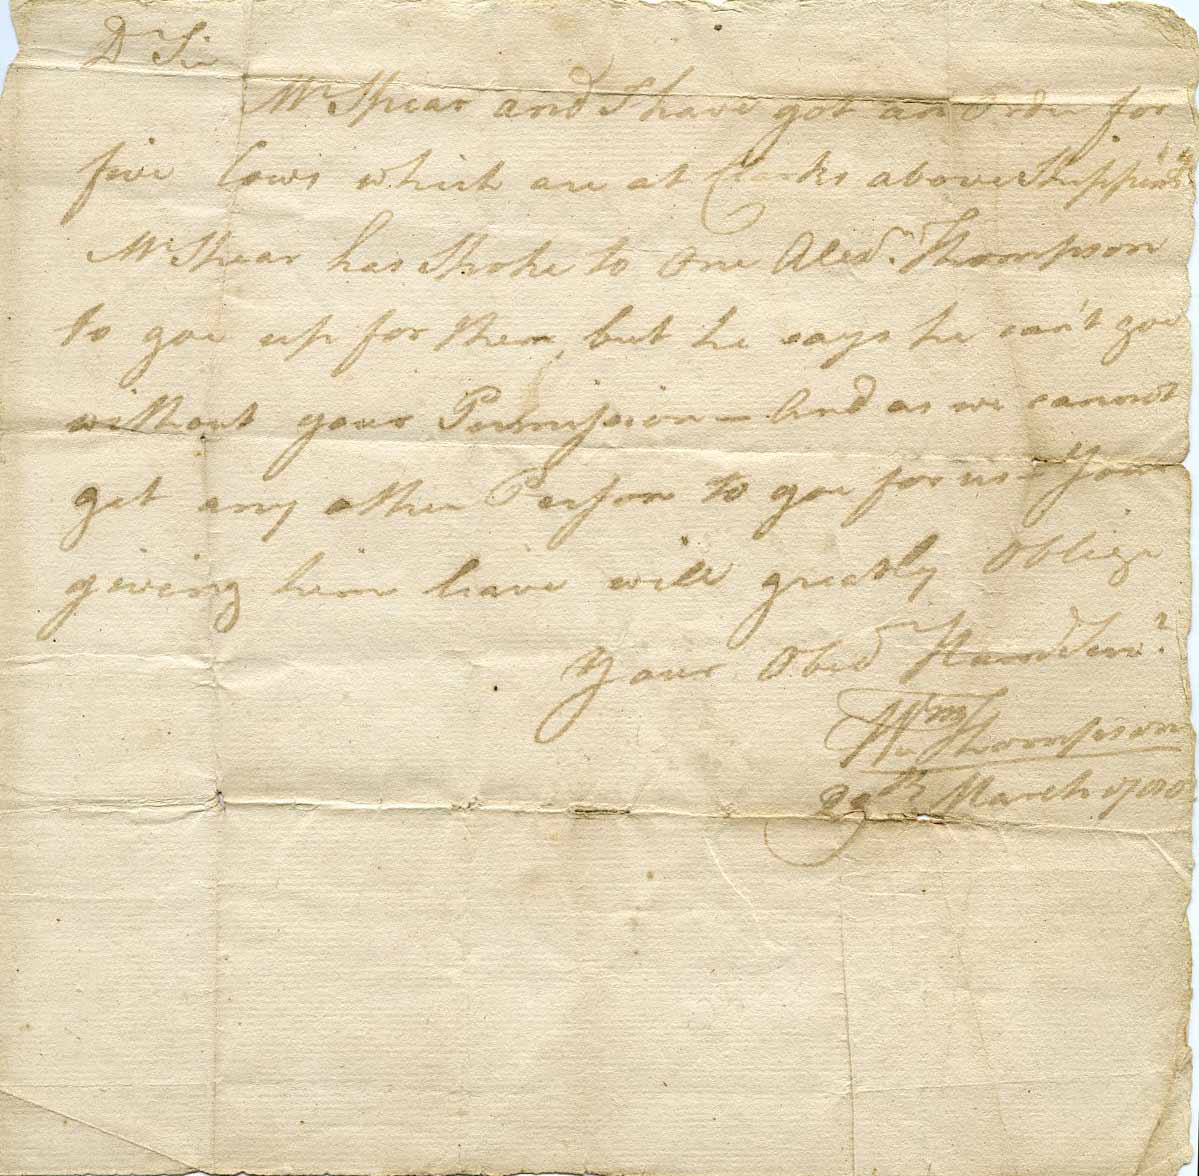 Dr Sir
Mr Spear and I have got an Order for
five Cows which are at Clarks above Shippins
Mr Spear has Spoke to One Alexdr. Thompson
to goe up for them, but he says he can't goe
without your Permission – And as we cannot
get any other Person to goe for us – Your
giving him leave will greatly Oblige
Your Obed Humd Serv.t
Wm Thompson
29th March 1780